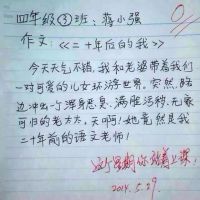 四年级③班：蒋小强
0
作文：《二十年后的我》
今天天气不错，我和老婆带着我们
一对可爱的儿女环游世界。突然，路
边冲出一个浑身恶臭、满脸污秽、无家
可归的老太太，天啊！她竟然是我
二十年前的语文老师！
这个星期你站着上课，
2014.5.29.